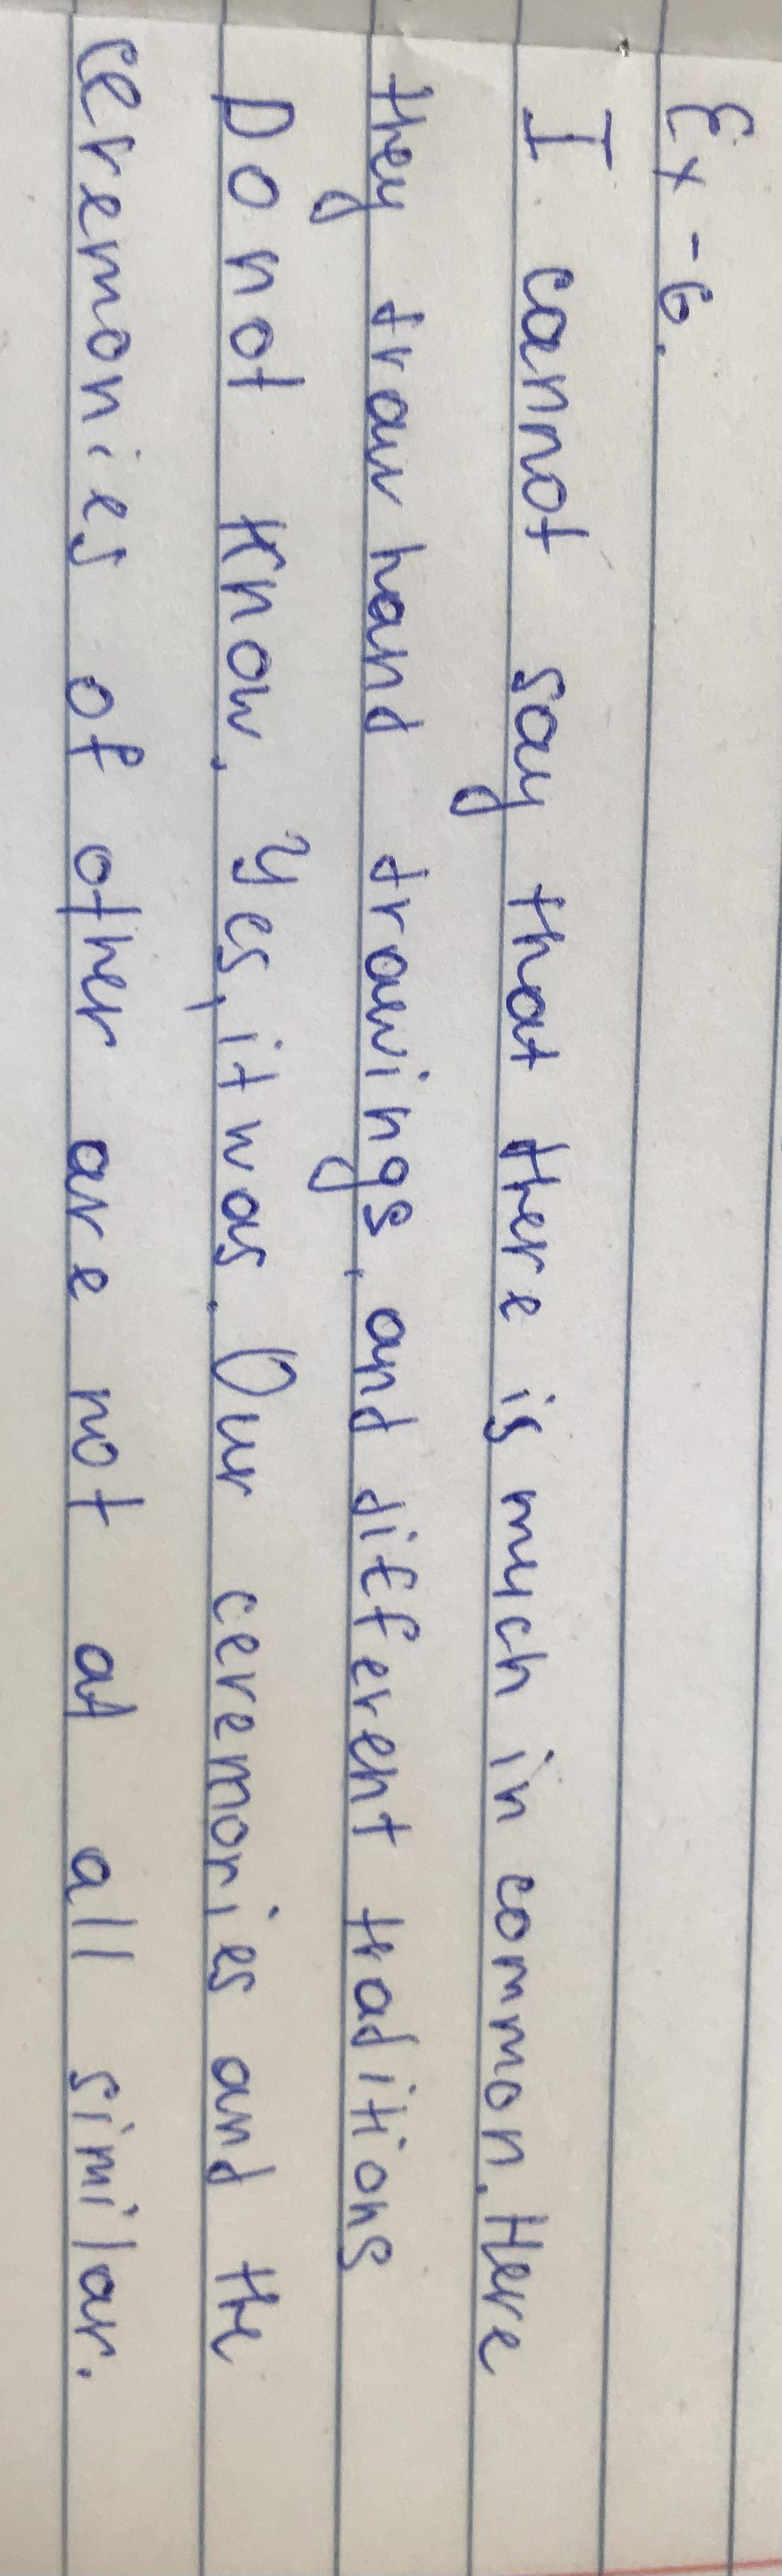 Ex - 6.
I cannot say that there is much in common. Here
they draw hand drawings, and different traditions
Do not know. Yes, it was. Our ceremories and the
ceremonies of other are not at all similar.